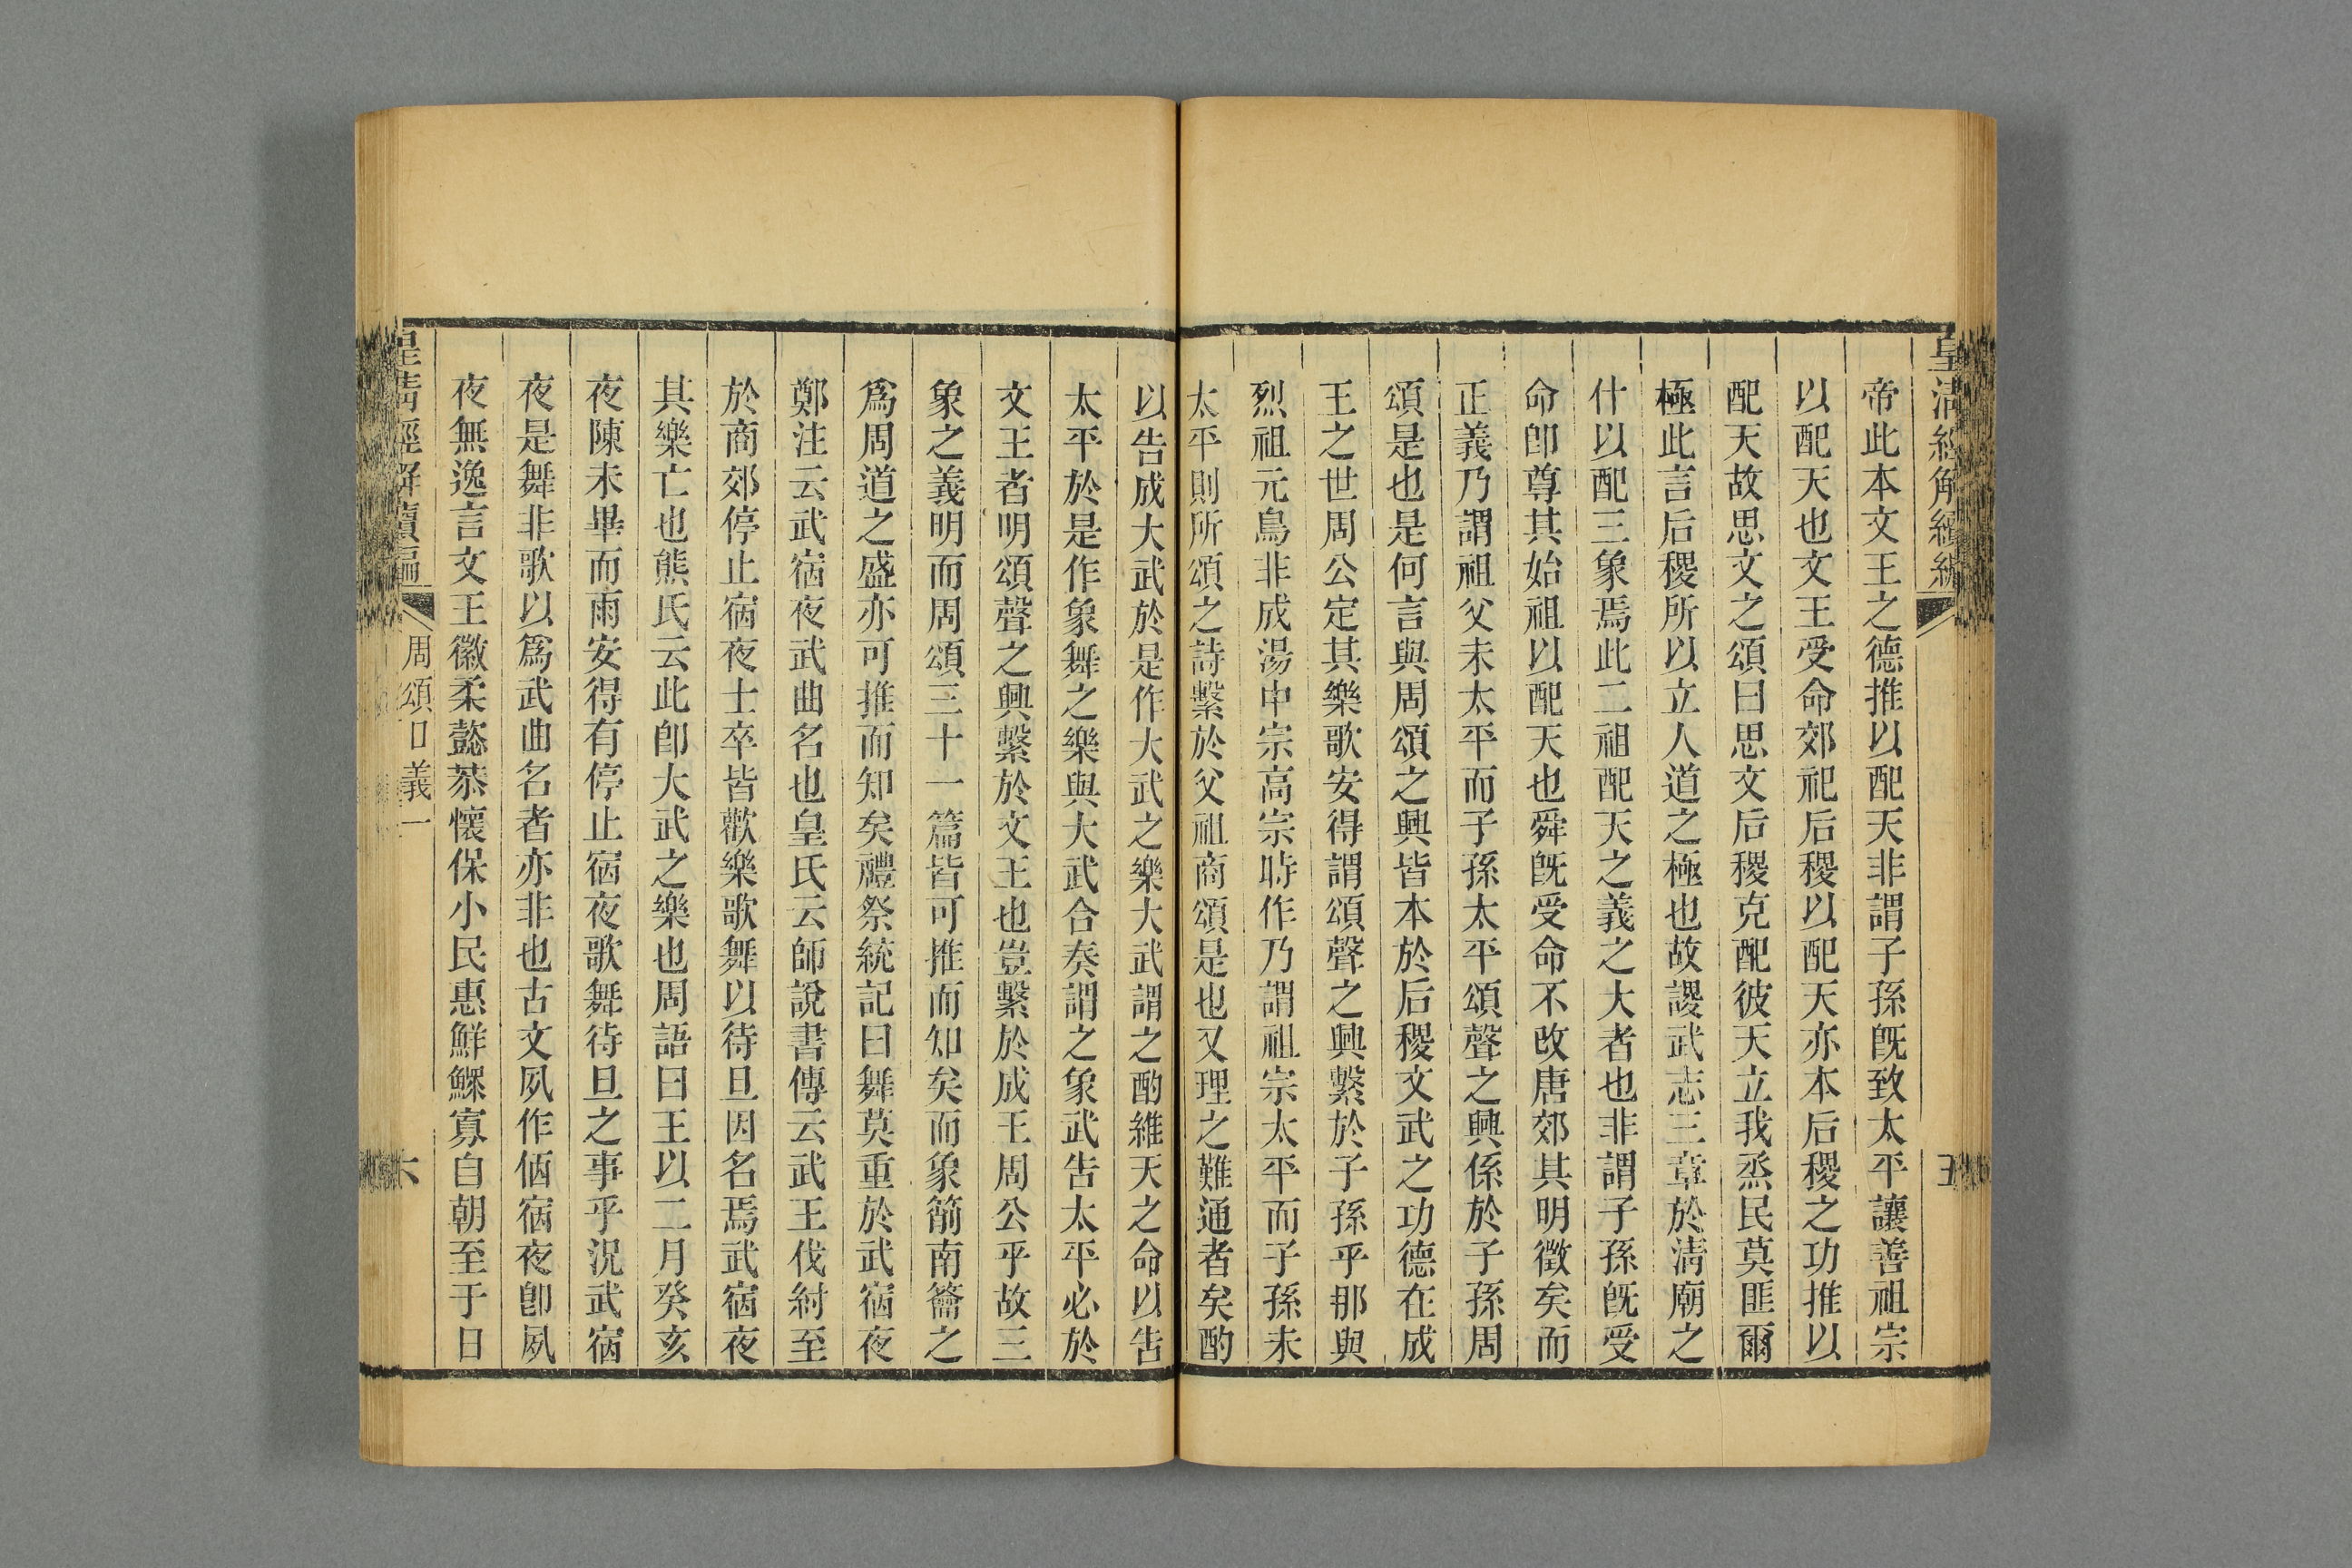 帝此本文王之德推以配天非謂子孫旣致太平讓善祖宗
以配天也文王受命郊祀后稷以配天亦本后稷之功推以
配天故思文之頌曰思文后稷克配彼天立我烝民莫匪爾
極此言后稷所以立人道之極也故謖武志三章於淸廟之
什以配三象焉此二祖配天之義之大者也非謂子孫旣受
命卽尊其始祖以配天也舜旣受命不改唐郊其明徵矣而
正義乃謂祖父未太平而子孫太平頌聲之興係於子孫周
頌是也是何言與周頌之興皆本於后稷文武之功德在成
王之世周公定其樂歌安得謂頌聲之興繫於子孫乎那與
烈祖元鳥非成湯中宗高宗時作乃謂祖宗太平而子孫未
太平則所頌之詩繫於父祖商頌是也又理之難通者矣酌
以告成大武於是作大武之樂大武謂之酌維天之命以告
太平於是作象舞之樂與大武合奏謂之象武告太平必於
文王者明頌聲之興繫於文王也豈繫於成王周公乎故三
象之義明而周頌三十一篇皆可推而知矣而象箾南籥之
爲周道之盛亦可推而知矣禮祭統記曰舞莫重於武宿夜
鄭注云武宿夜武曲名也皇氏云師說書傳云武王伐紂至
於商郊停止宿夜士卒皆歡樂歌舞以待旦因名焉武宿夜
其樂亡也熊氏云此卽大武之樂也周語曰王以二月癸亥
夜陳未畢而雨安得有停止宿夜歌舞待旦之事乎況武宿
夜是舞非歌以爲武曲名者亦非也古文夙作㑉宿夜卽夙
夜無逸言文王徽柔懿恭懷保小民惠鮮鰥寡自朝至于日
皇淸經解續編
周頌口義一
六